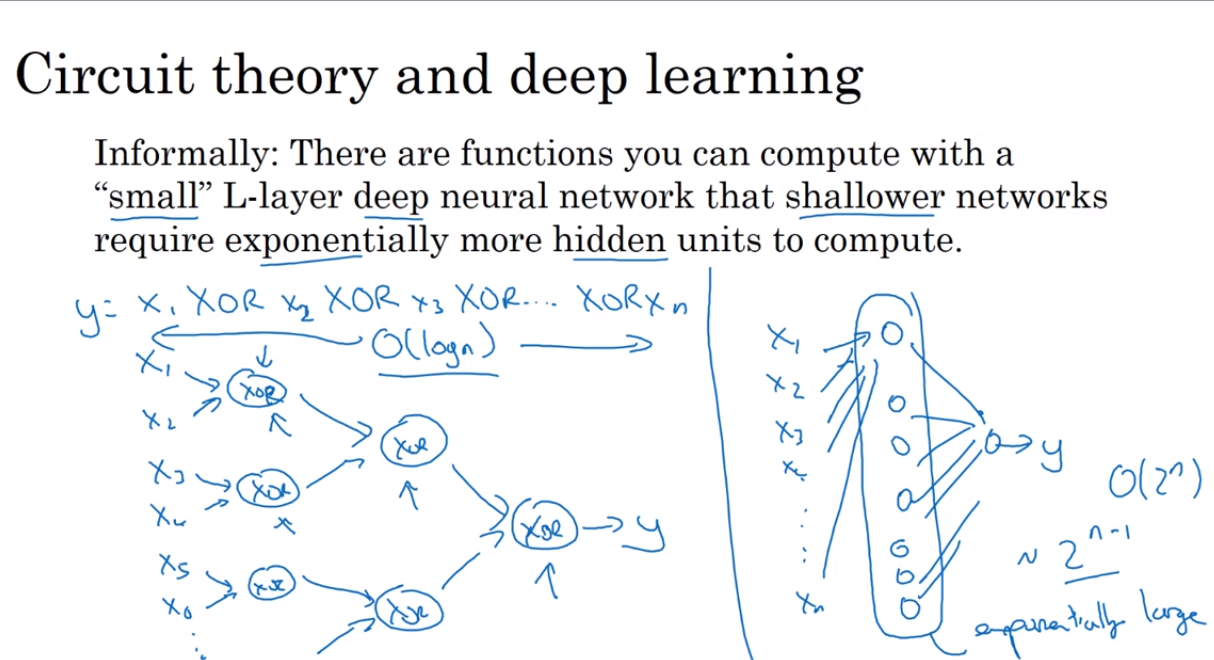 Circuit theory and deep learning
Informally: There are functions you can compute with a
“small” L-layer deep neural network that shallower networks
require exponentially more hidden units to compute.
y= x₁ XOR x₂ XOR x₃ XOR.... XOR xₙ
O(log n)
x₁
XOR
x₂
XOR
x₃
XOR
x₄
XOR
→ y
x₅
XOR
x₆
XOR
x₁
x₂
x₃
x₄
xₙ
→ y
O(2ⁿ)
~ 2ⁿ⁻¹
exponentially large